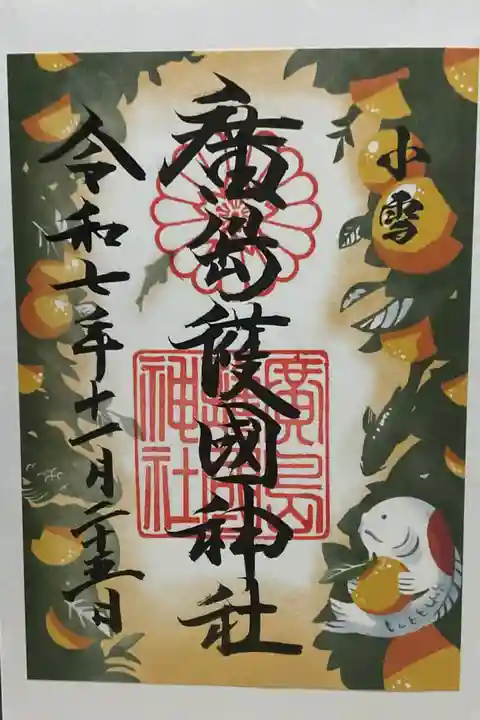 小雪
廣島護國神社
廣島護國神社
令和七年十一月二十五日